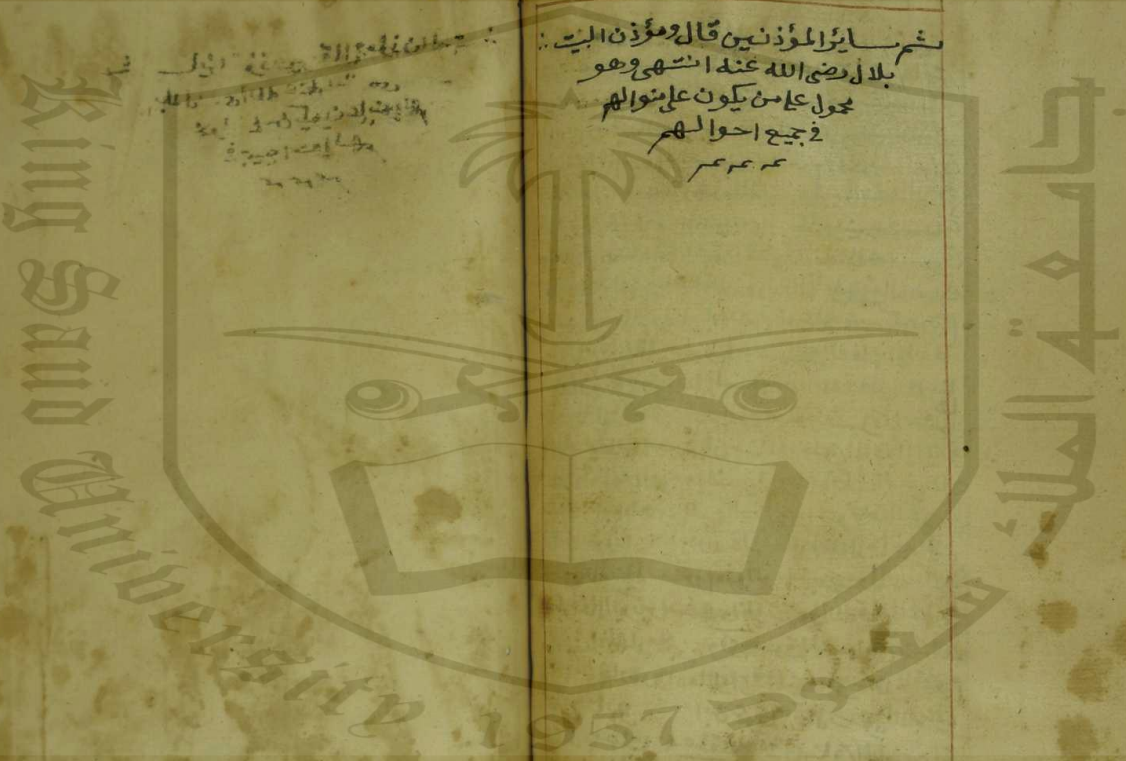 ثم سايرالمؤذنين قال ومؤذن البيت
بلال رضى الله عنه انتهى وهو
محمول على من يكون على منوالهم
في جميع احوالهم
King Saud University
1957
جامعة الملك سعود